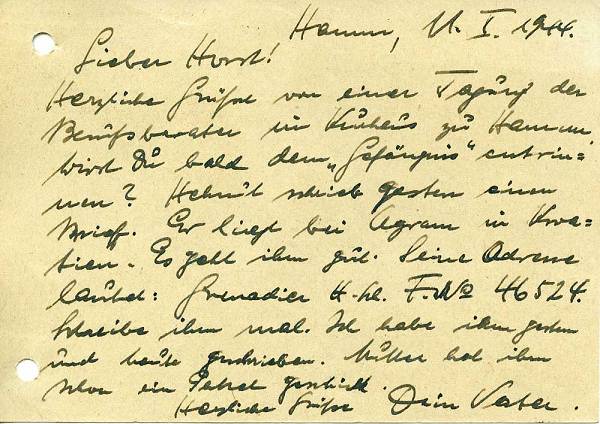 Hamm, 11. I. 1944.
Lieber Horst!
Herzliche Grüße von einer Tagung der
Berufsberater im Kurhaus zu Hamm.
Wirst Du bald dem „Gefängnis" entrin=
nen? Helmut schrieb gestern einen
Brief. Er liegt bei Agram in Kroa=
tien. Es geht ihm gut. Seine Adresse
lautet: Grenadier H. F. No 46524.
Schreibe ihm mal. Ich habe ihm gestern
und heute geschrieben. Mutter hat ihm
schon ein Paket geschickt.
Herzliche Grüße Dein Vater.